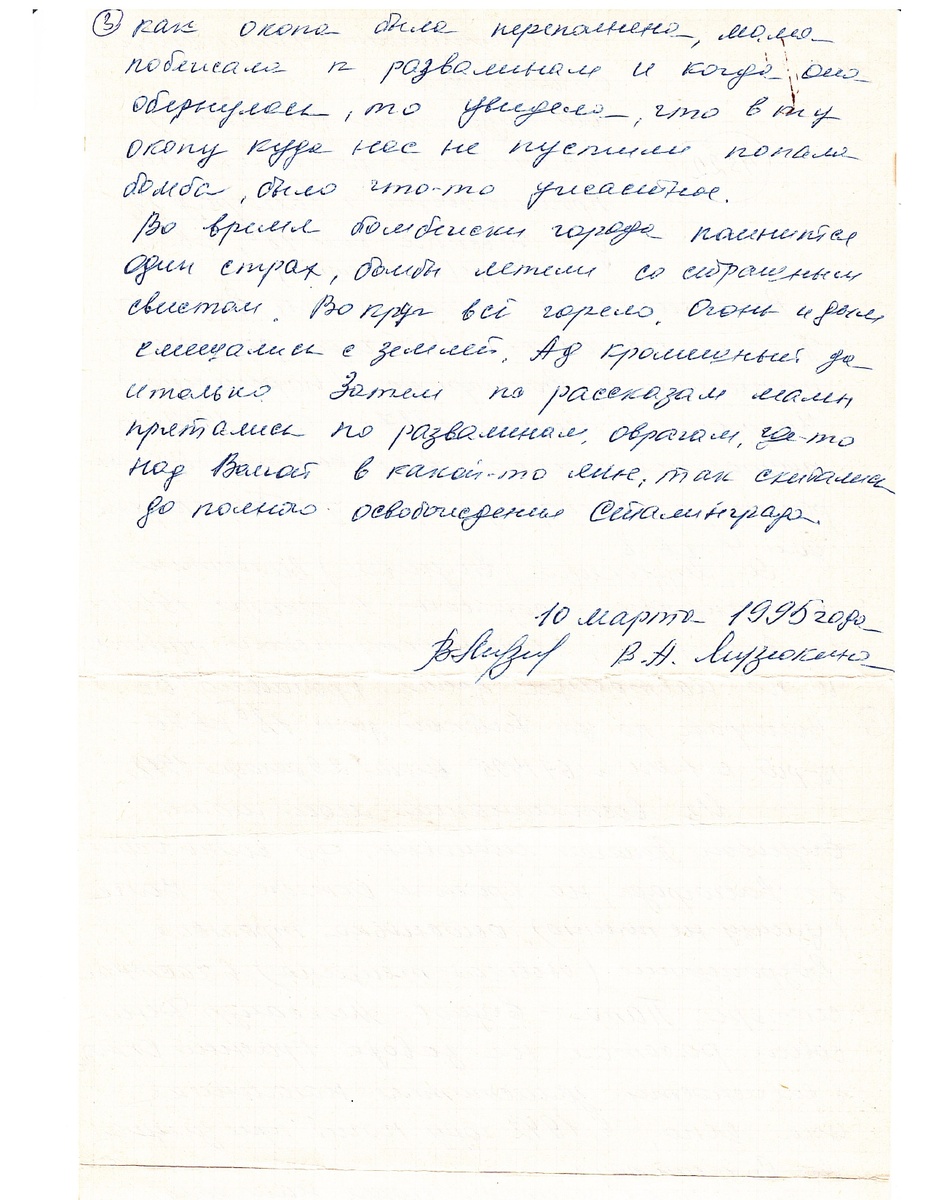 ③ как окопа была переполнена, мама
побежала к развалинам и когда она
обернулась, то увидела, что в ту
окопу куда нас не пустили попала
бомба, было что-то ужасное.
Во время бомбежки города помнится
один страх, бомбы летели со страшным
свистом. Вокруг всё горело. Огонь и дым
смешались с землей. Ад кромешный да
и только Затем по рассказам мамы
прятались по развалинам, оврагам, где-то
над Волгой в какой-то, так скитались
до полного освобождения Сталинграда.
10 марта 1995 года
В. А. Лизюкина